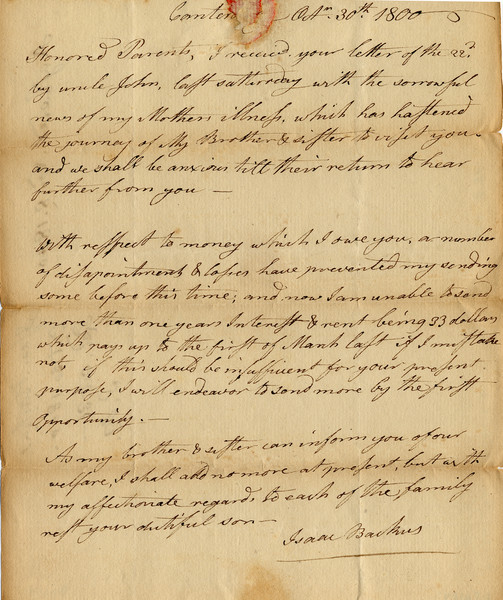 Octr. 30th. 1800
Honored Parents, I receied your letter of the 22d.
by uncle John, last satturday with the sorrowful
news of my Mothers illness, which has hastened
the journey of My Brother & sister to visit you
and we shall be anxious till their return to hear
further from you —
With respect to money which I owe you, a number
of disapointments & losses have prevented my sending
some before this time; and now I am unable to send
more than one years Interest & rent being 33 dollars
which pays up to the first of March last if I mistake
not, if this should be insufficient for your present
purpose, I will endeavor to send more by the first
Opportunity. —
As my brother & sister can inform you of our
welfare, I shall add no more at present, but with
my affectionate regards to each of the family
rest your dutiful son —
Isaac Backus